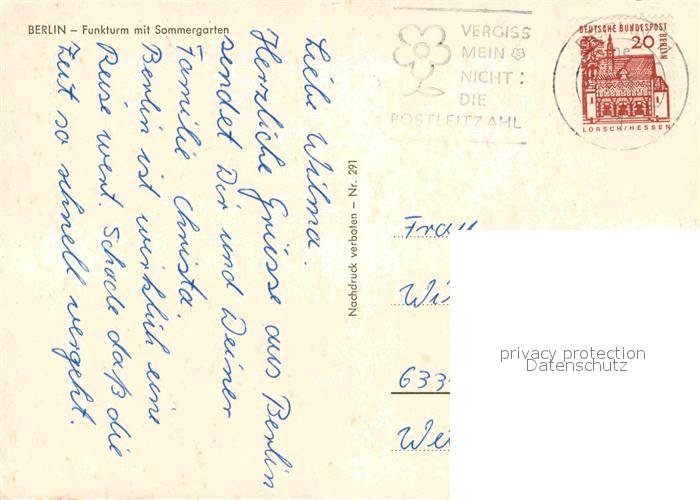 BERLIN – Funkturm mit Sommergarten
Liebe Wilma.
Herzliche Grüsse aus Berlin
sendet Dir und Deiner
Familie Christa.
Berlin ist wirklich eine
Reise wert. Schade daß die
Zeit so schnell vergeht.
Nachdruck verboten – Nr. 291
VERGISS
MEIN
NICHT:
DIE
POSTLEITZAHL
DEUTSCHE BUNDESPOST
BERLIN
20
LORSCH/HESSEN
Frau
Wi
633
We
privacy protection
Datenschutz